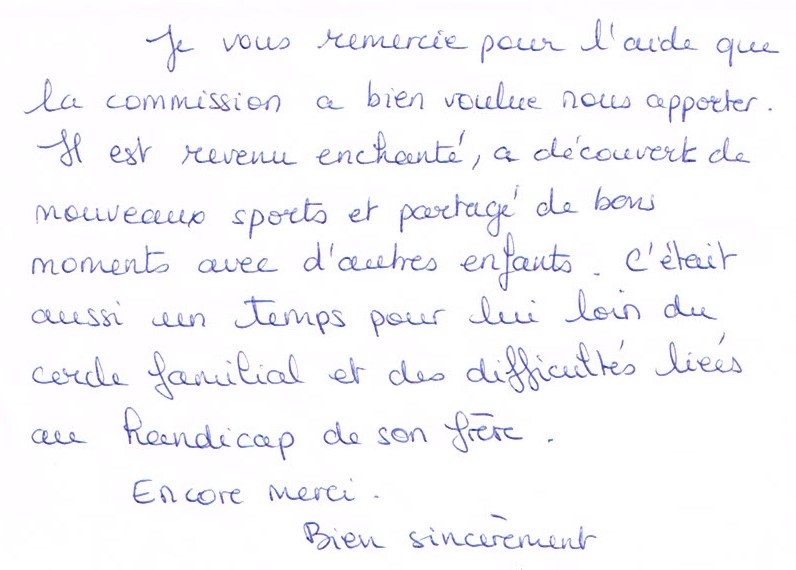 Je vous remercie pour l'aide que
la commission a bien voulue nous apporter.
Il est revenu enchanté, a découvert de
nouveaux sports et partagé de bons
moments avec d'autres enfants. C'était
aussi un temps pour lui loin du
cercle familial et des difficultés liées
au handicap de son frère.
Encore merci.
Bien sincèrement